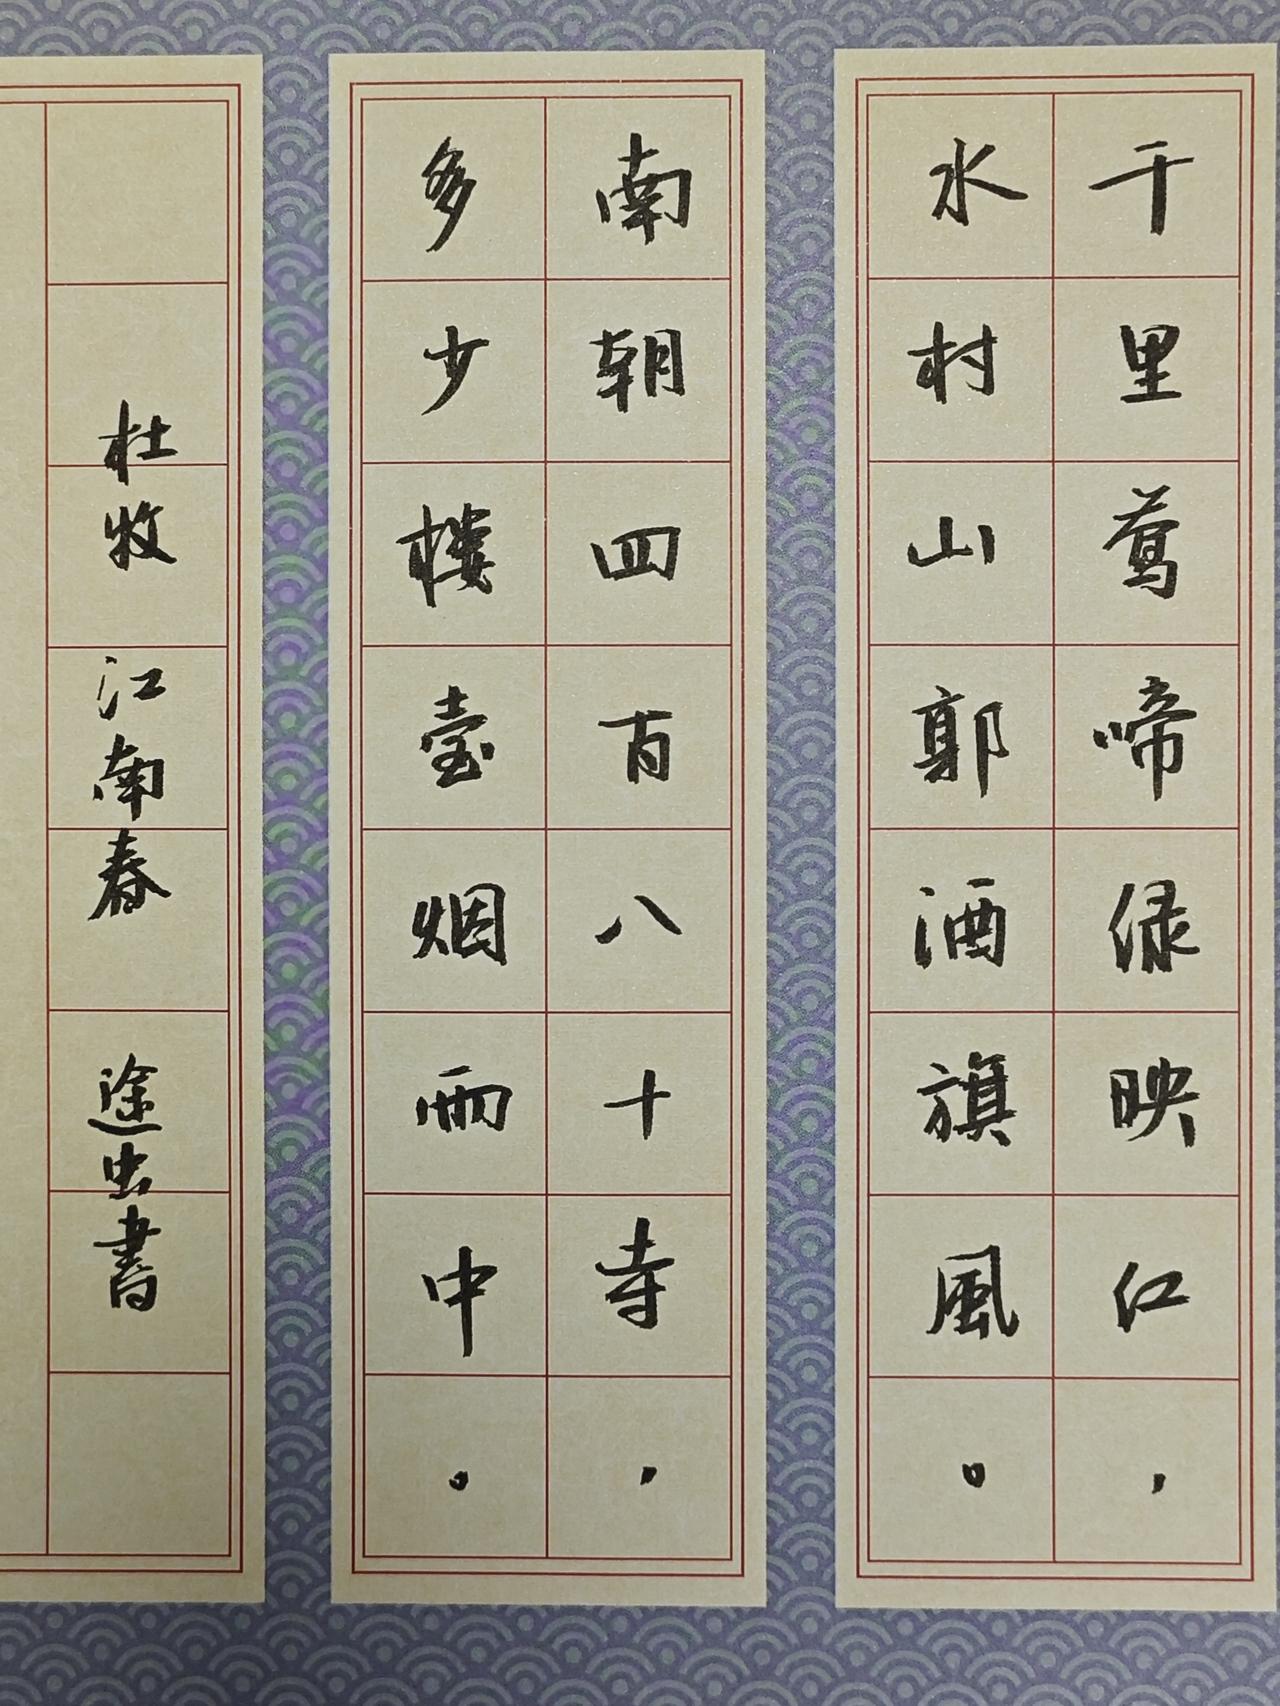 千里莺啼绿映红，
水村山郭酒旗風。
南朝四百八十寺，
多少樓臺烟雨中。
杜牧 江南春 途虫書